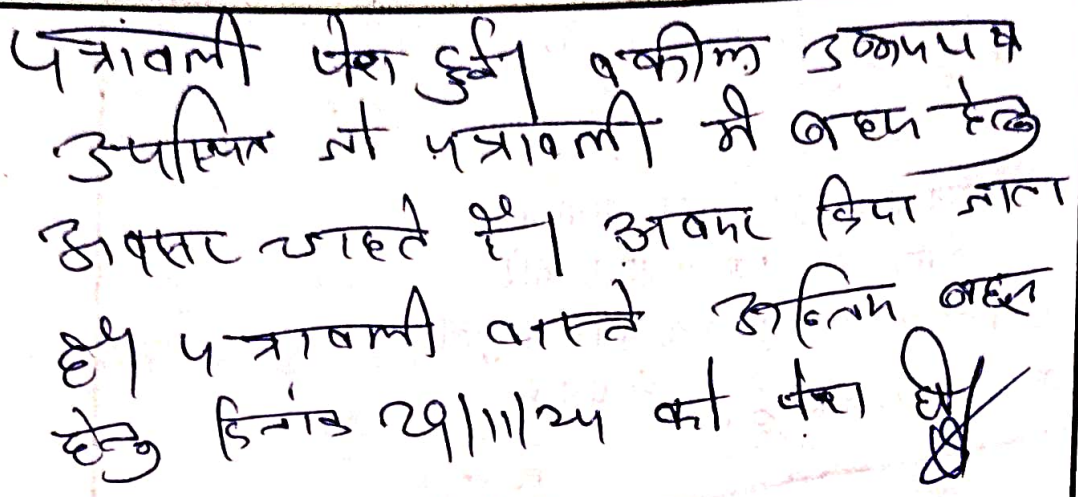 पत्रांवली पेश हुई। वकील उभयपक्ष
उपस्थित जो पत्रावली मे बहस हेतु
अवसर चाहते है। अवसर दिया जाता
है। पत्रावली वास्ते अन्तिम बहस
हेतु दिनांक 29/11/24 को पेश हो।